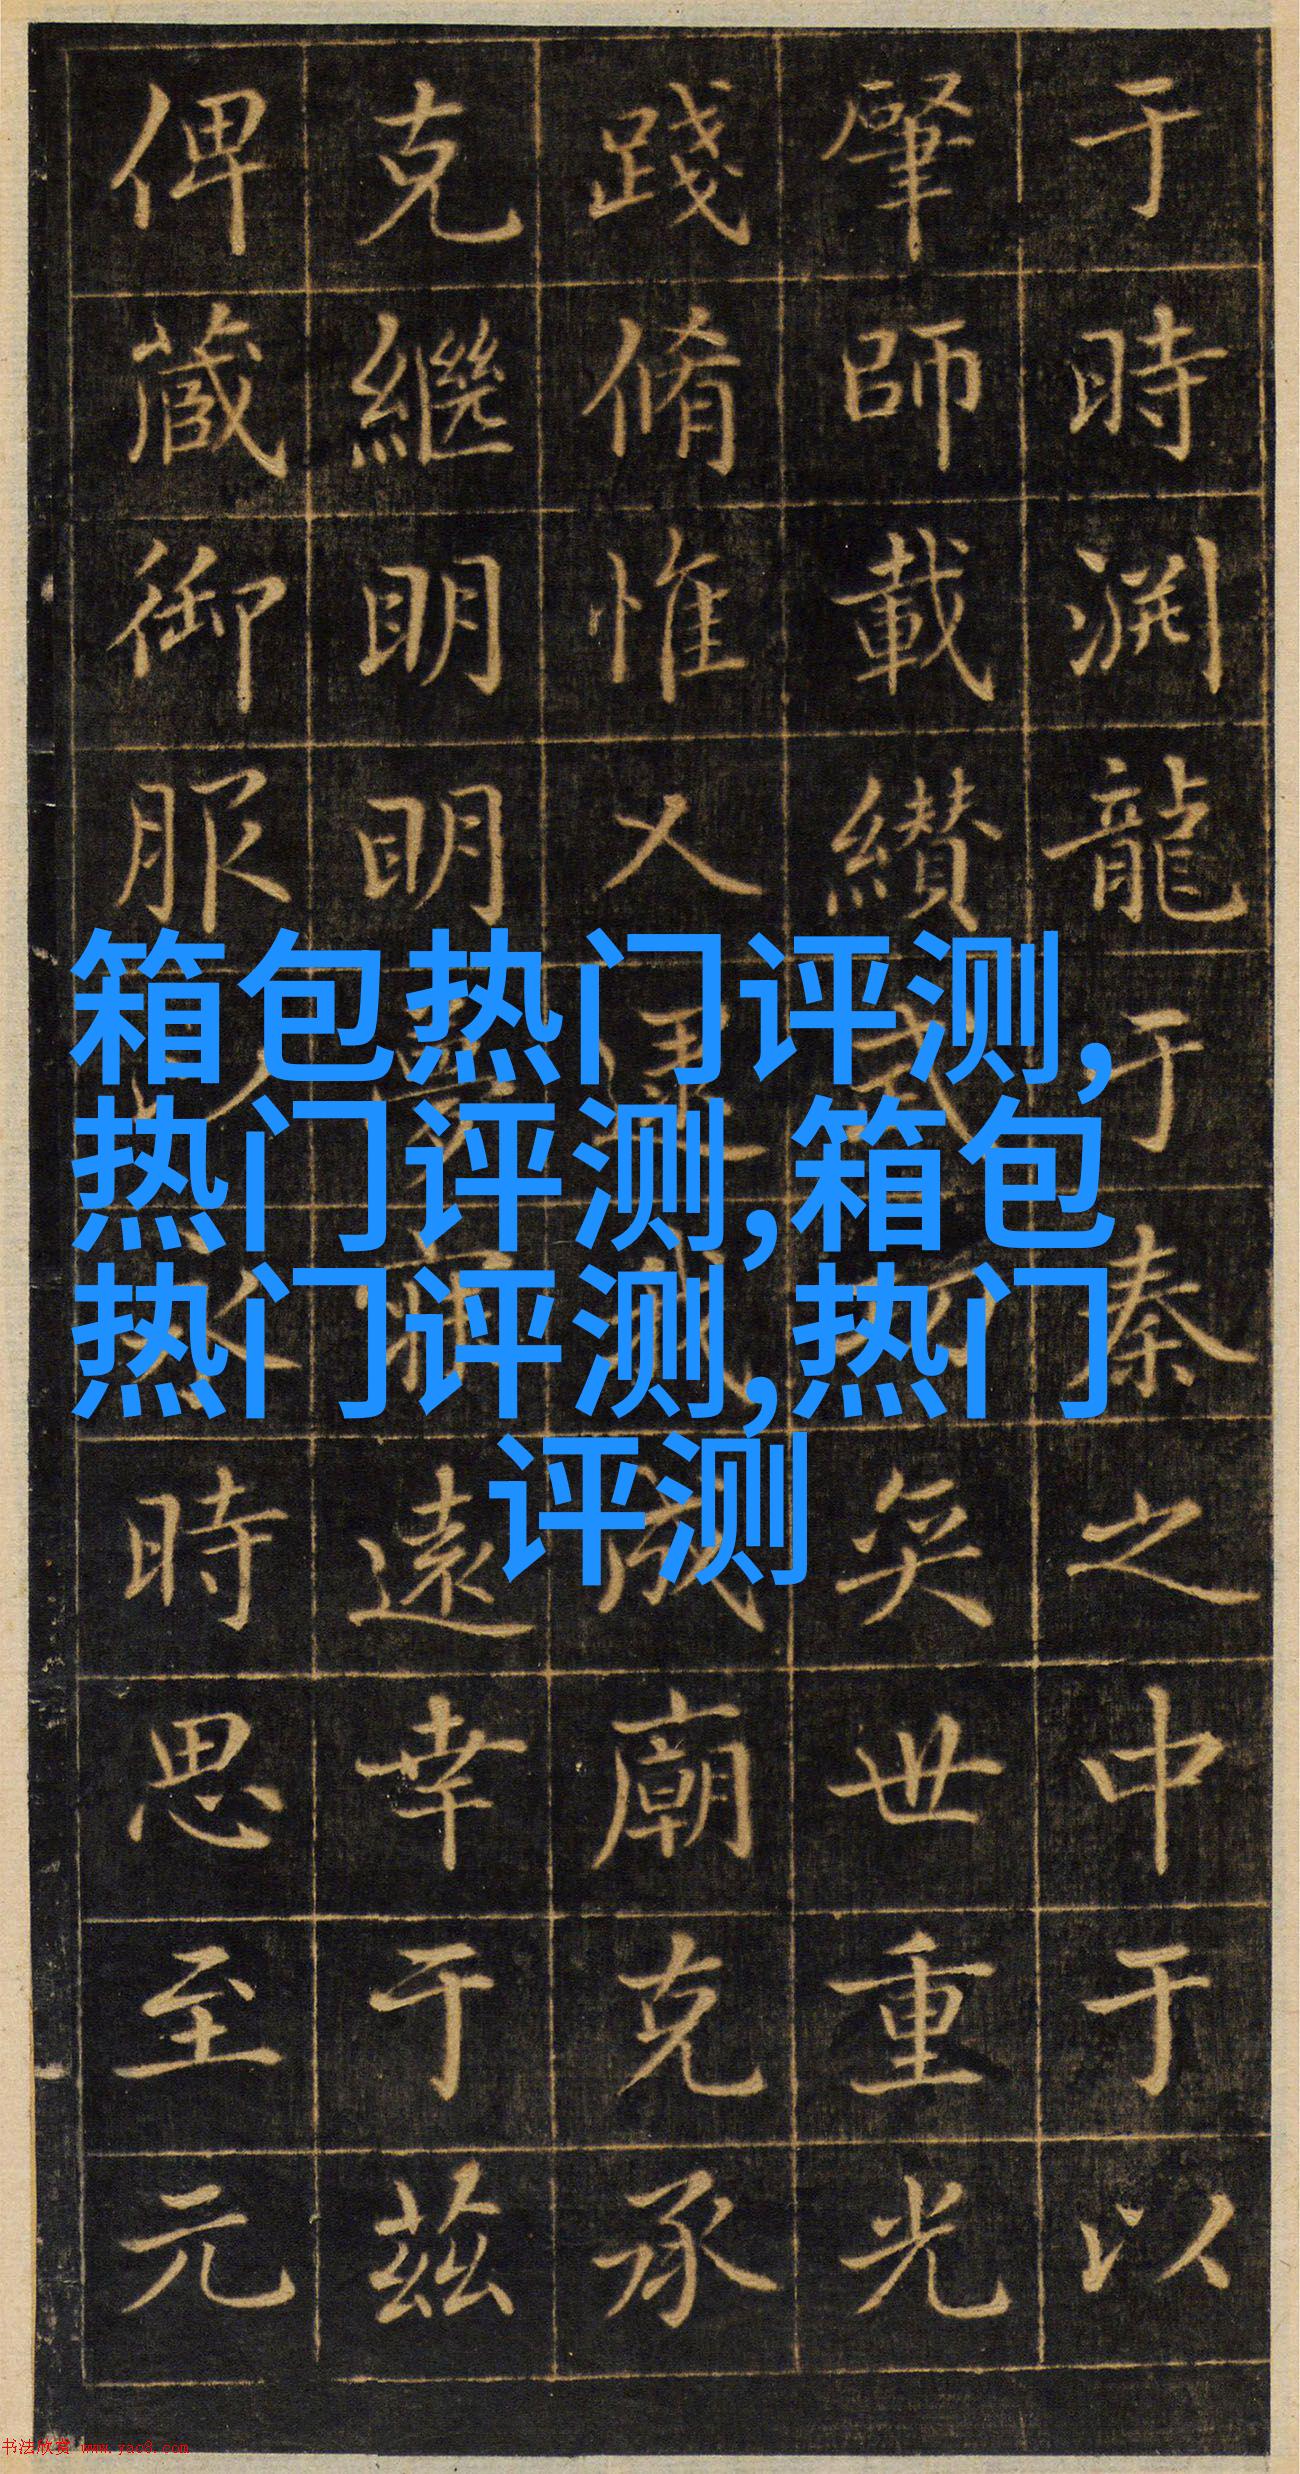 箱包热门评测,
热门评测,箱包
热门评测,热门
评测
于時渕龍于秦之中于以
肇師載纘奕世重光
踐脩惟人成廟克承
克繼明明遠幸于茲
俾蕆御服時思至元
书法欣赏 www.yac8.com